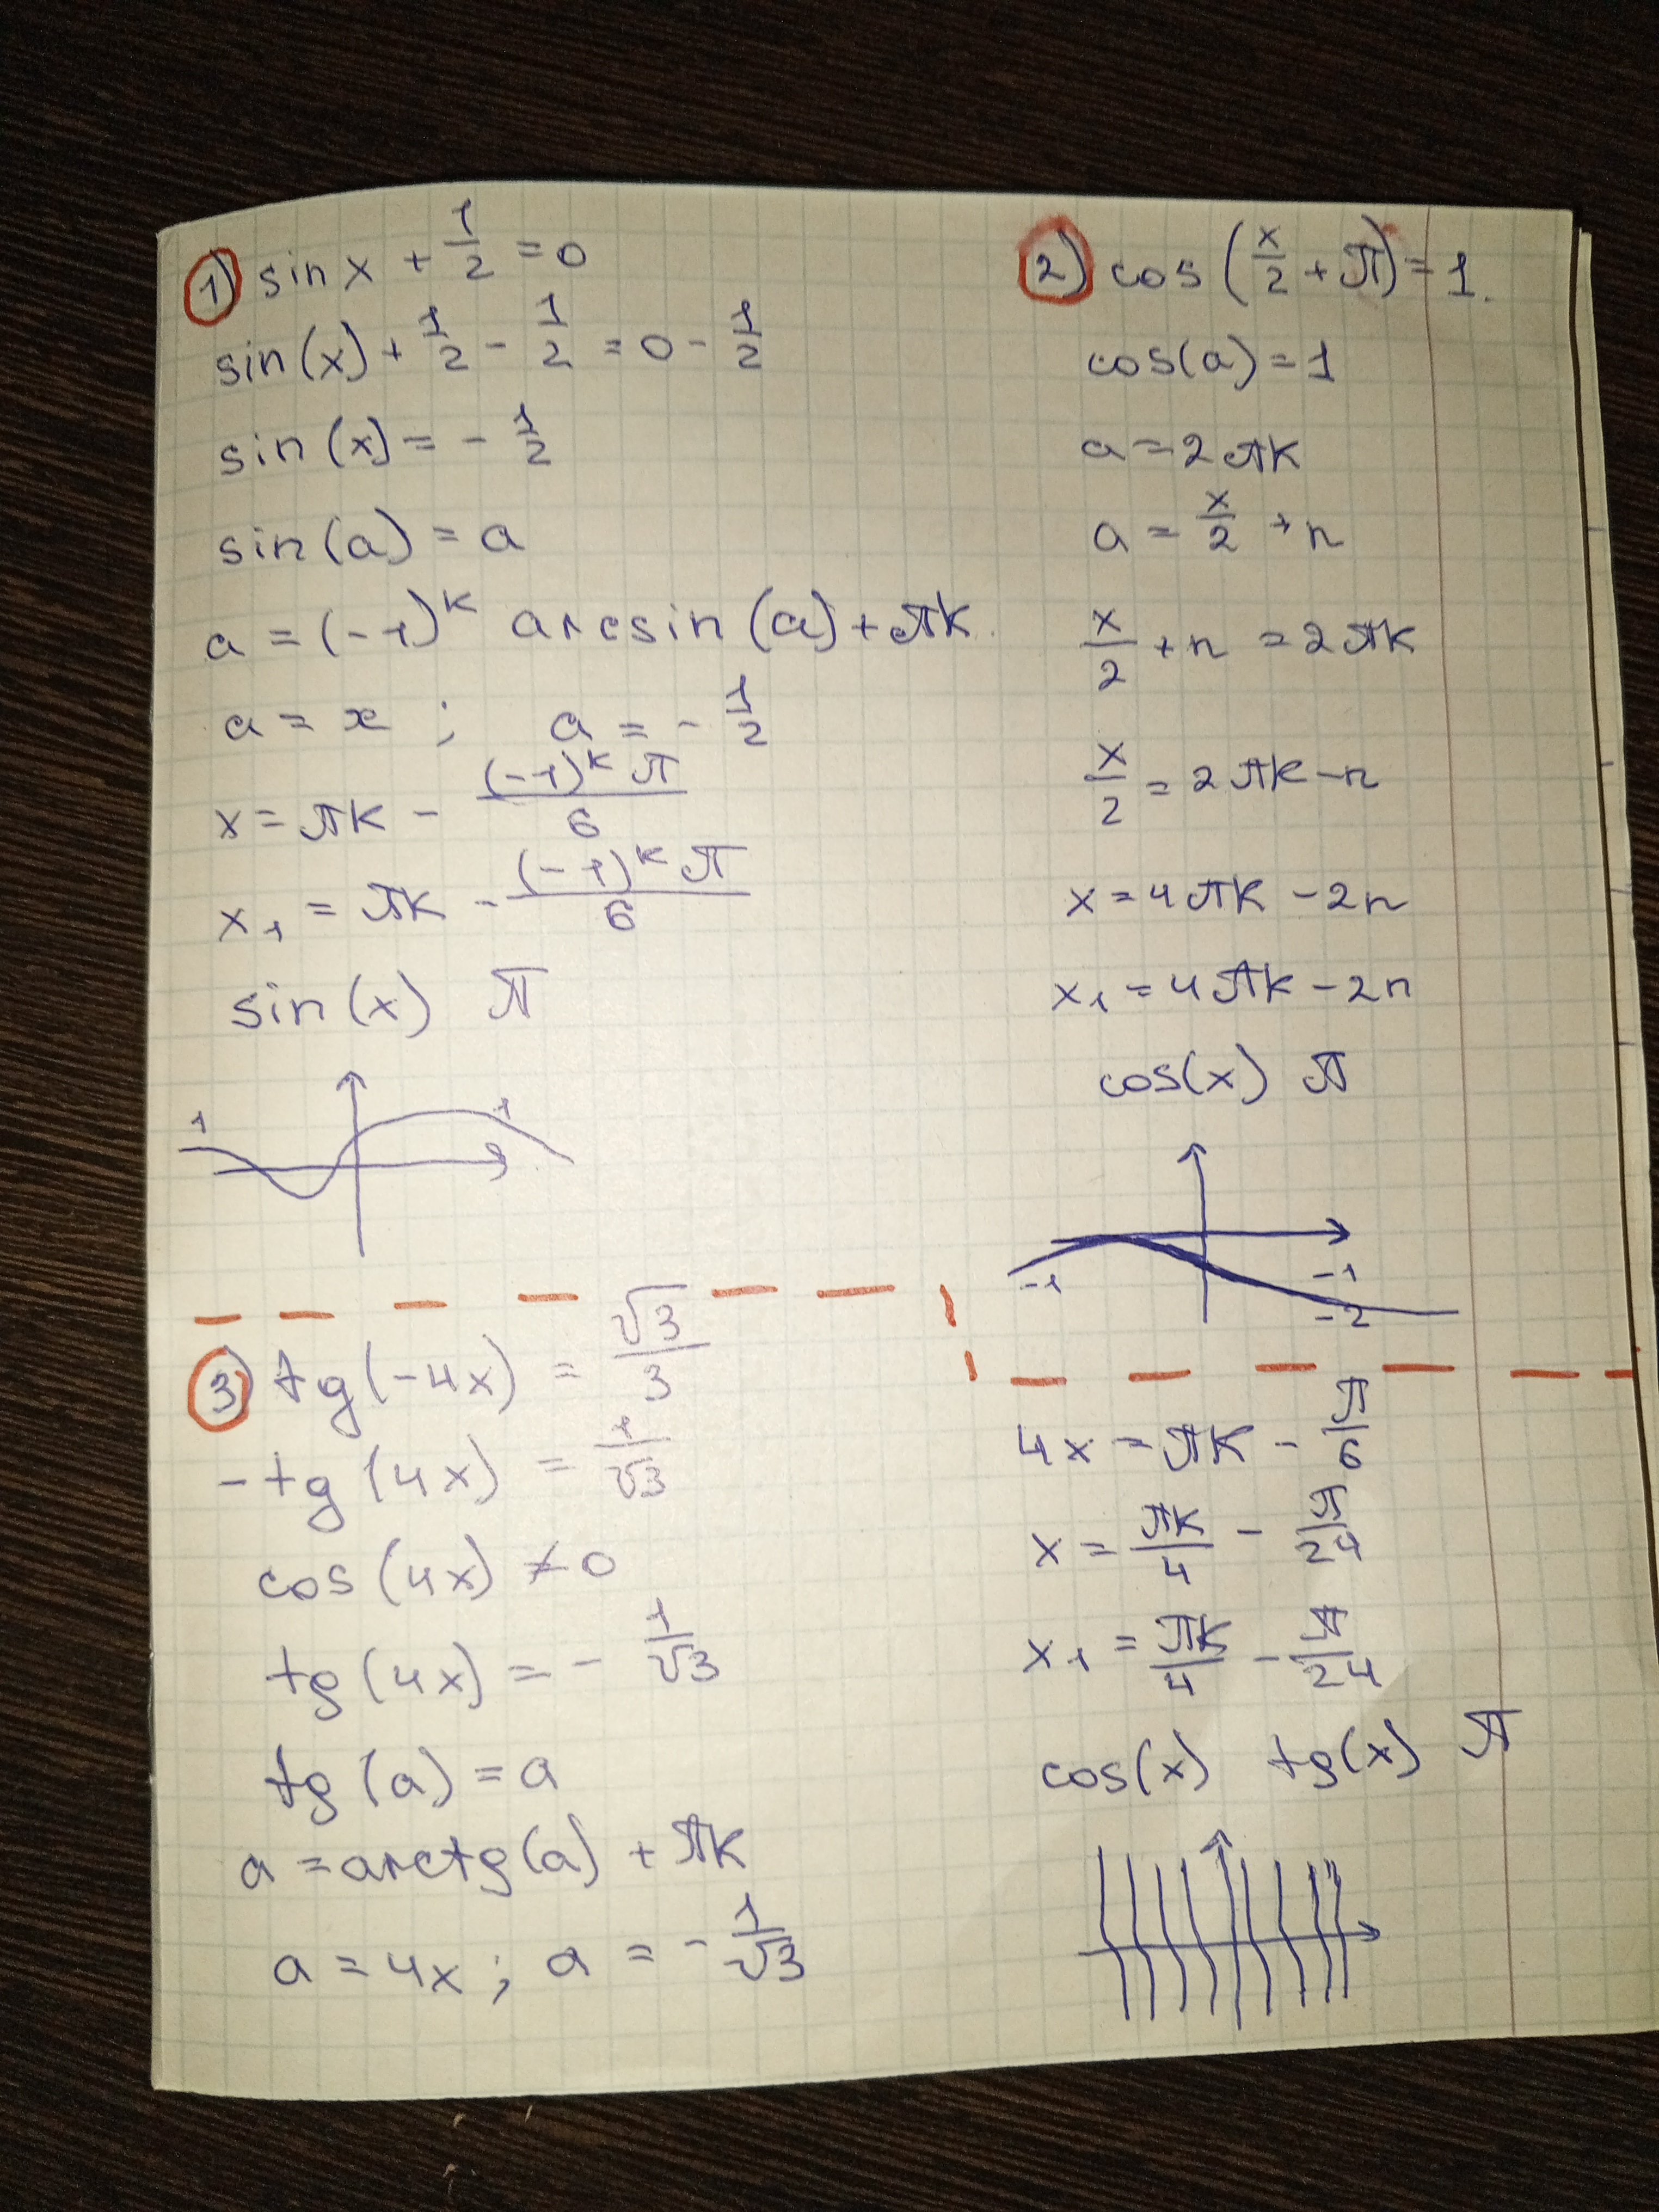 1) sin x + 1/2 = 0
sin(x) + 1/2 - 1/2 = 0 - 1/2
sin(x) = - 1/2
sin(a) = a
a = (-1)^k arcsin(a) + πk
a = x ; a = - 1/2
x = πk - (-1)^k π / 6
x₁ = πk - (-1)^k π / 6
sin(x) π
1 1
2) cos(x/2 + π) = 1.
cos(a) = 1
a = 2πk
a = x/2 + n
x/2 + n = 2πk
x/2 = 2πk - n
x = 4πk - 2n
x₁ = 4πk - 2n
cos(x) π
-1 -1
-2
3) tg(-4x) = √3/3
-tg(4x) = 1/√3
cos(4x) ≠ 0
tg(4x) = - 1/√3
tg(a) = a
a = arctg(a) + πk
a = 4x ; a = - 1/√3
4x = πk - π/6
x = πk/4 - π/24
x₁ = πk/4 - π/24
cos(x) tg(x) π